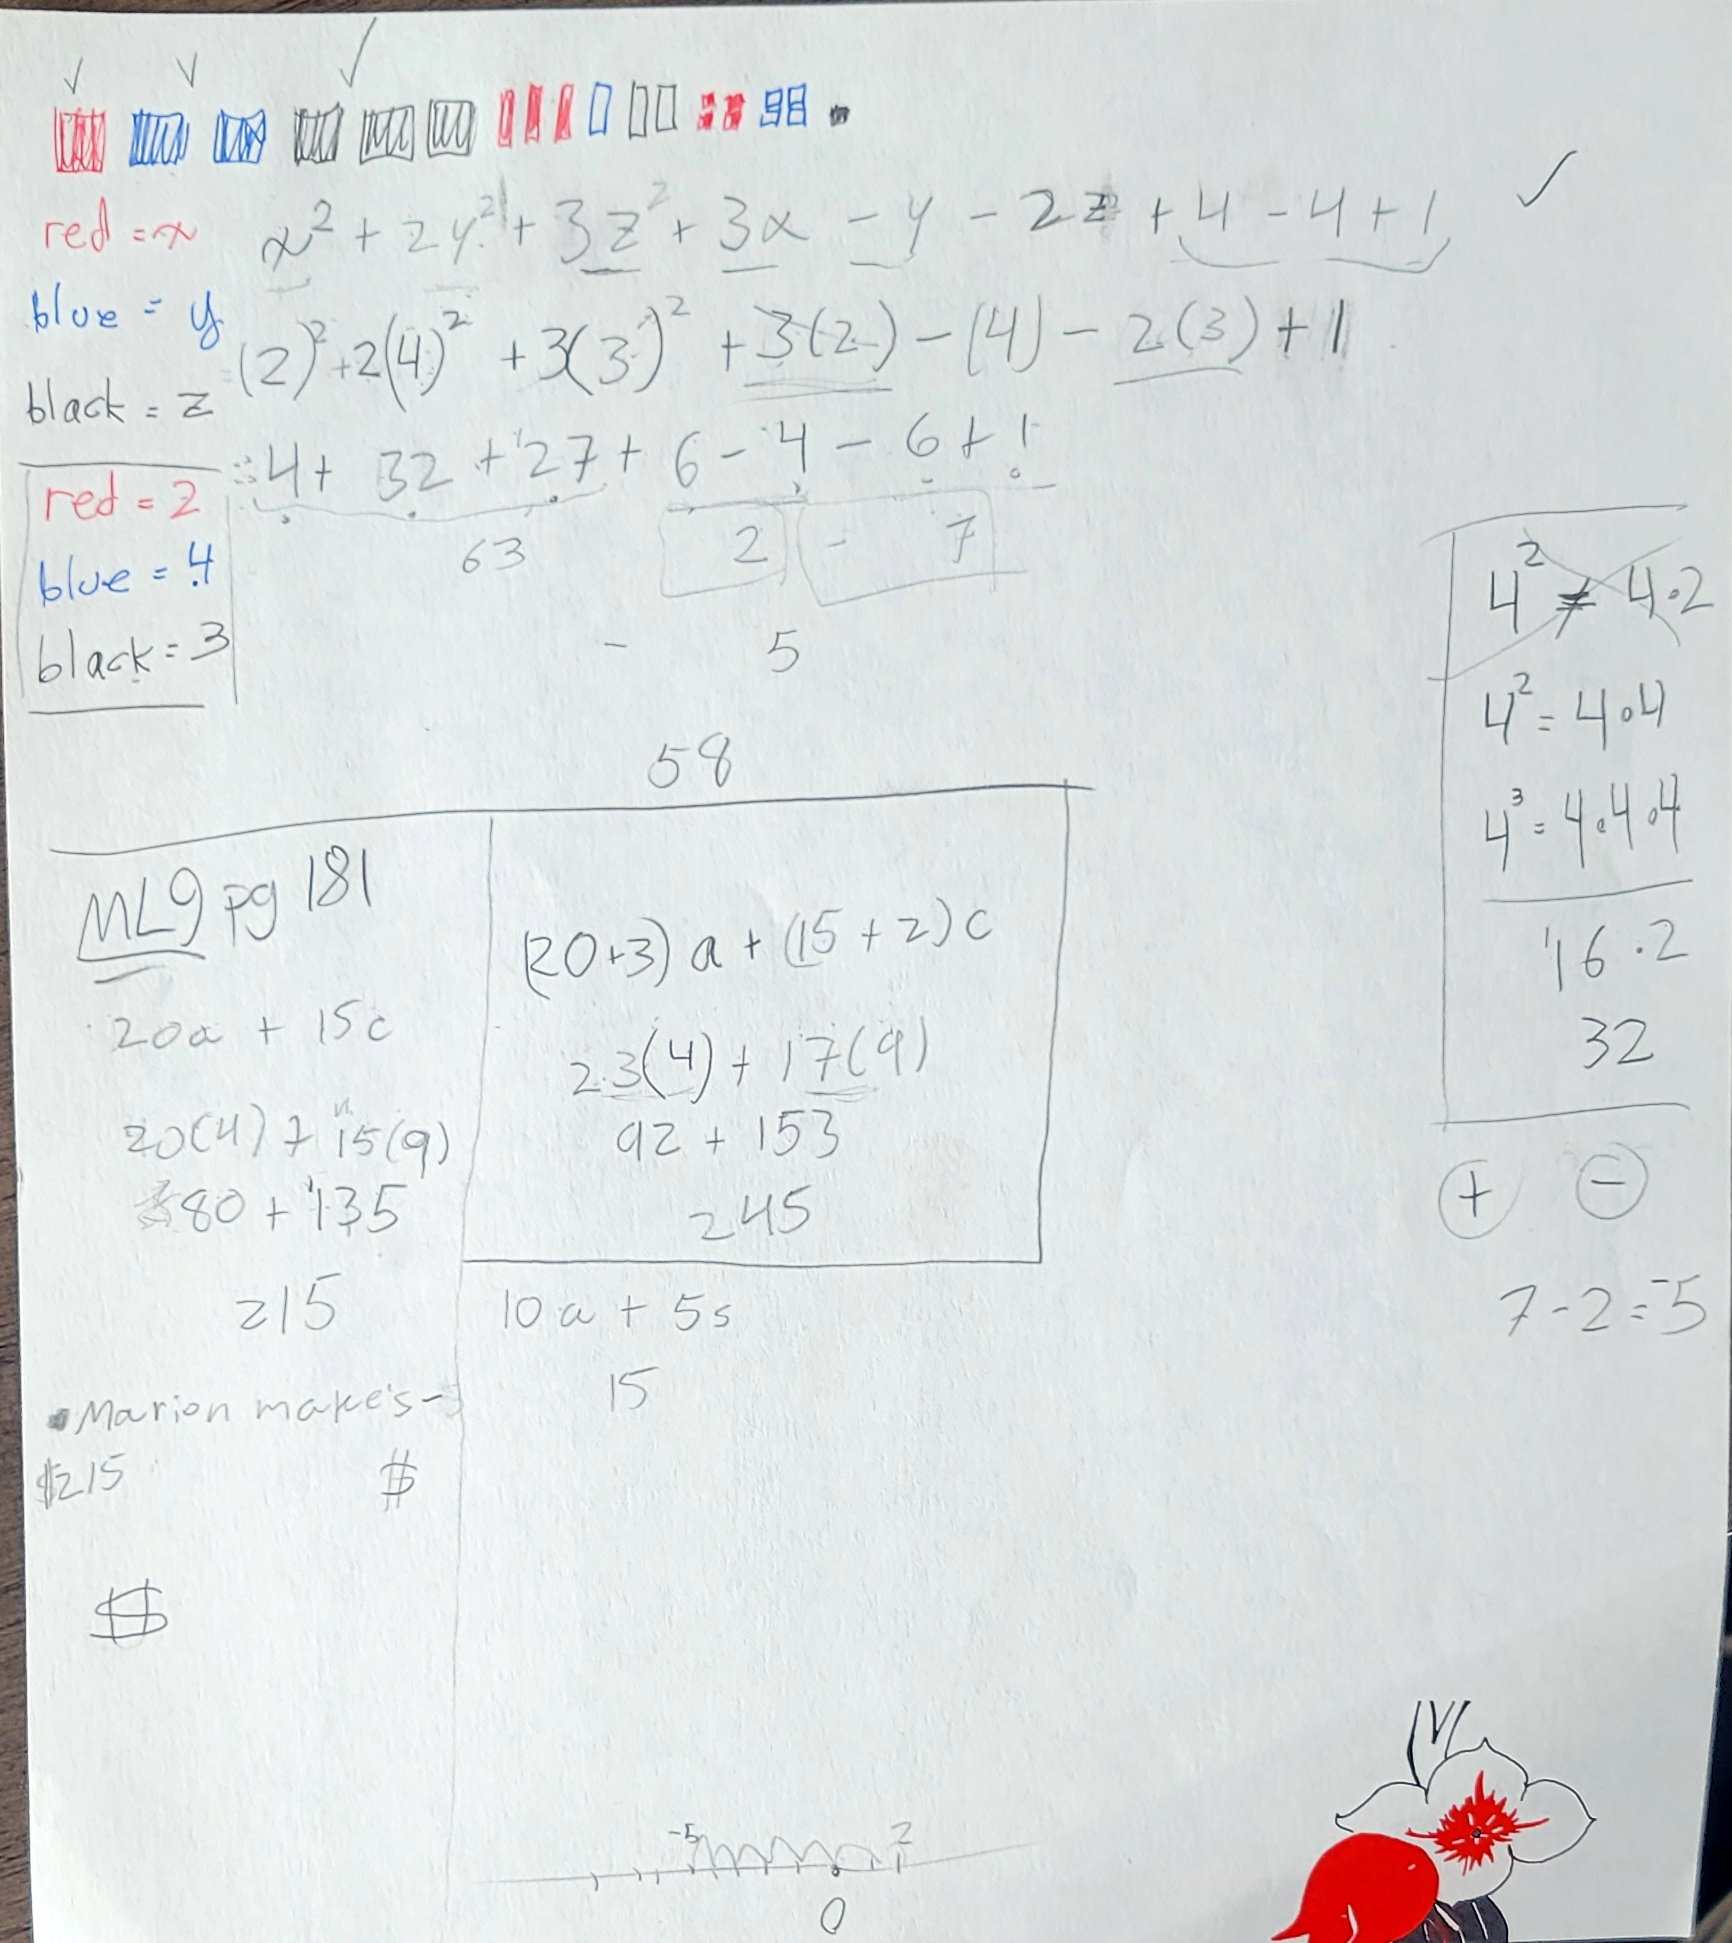 red = x
x² + 2y² + 3z² + 3x - y - 2z + 4 - 4 + 1
blue = y
(2)² + 2(4)² + 3(3)² + 3(2) - (4) - 2(3) + 1
black = z
= 4 + 32 + 27 + 6 - 4 - 6 + 1
red = 2
blue = 4
black = 3
63
2 - 7
- 5
58
4² ≠ 4·2
4² = 4·4
4³ = 4·4·4
16·2
32
+ -
7-2=-5
ML9 pg 181
20a + 15c
20(4) + 15(9)
80 + 135
215
Marion make's-
$215
$
$
(20+3)a + (15+2)c
23(4) + 17(9)
92 + 153
245
10a + 5s
15
-5 2
0